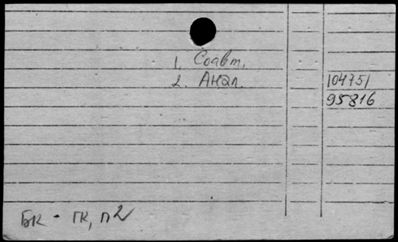 1. Соавт.
2. Англ.
10475/
95816
БК - ГК, П2